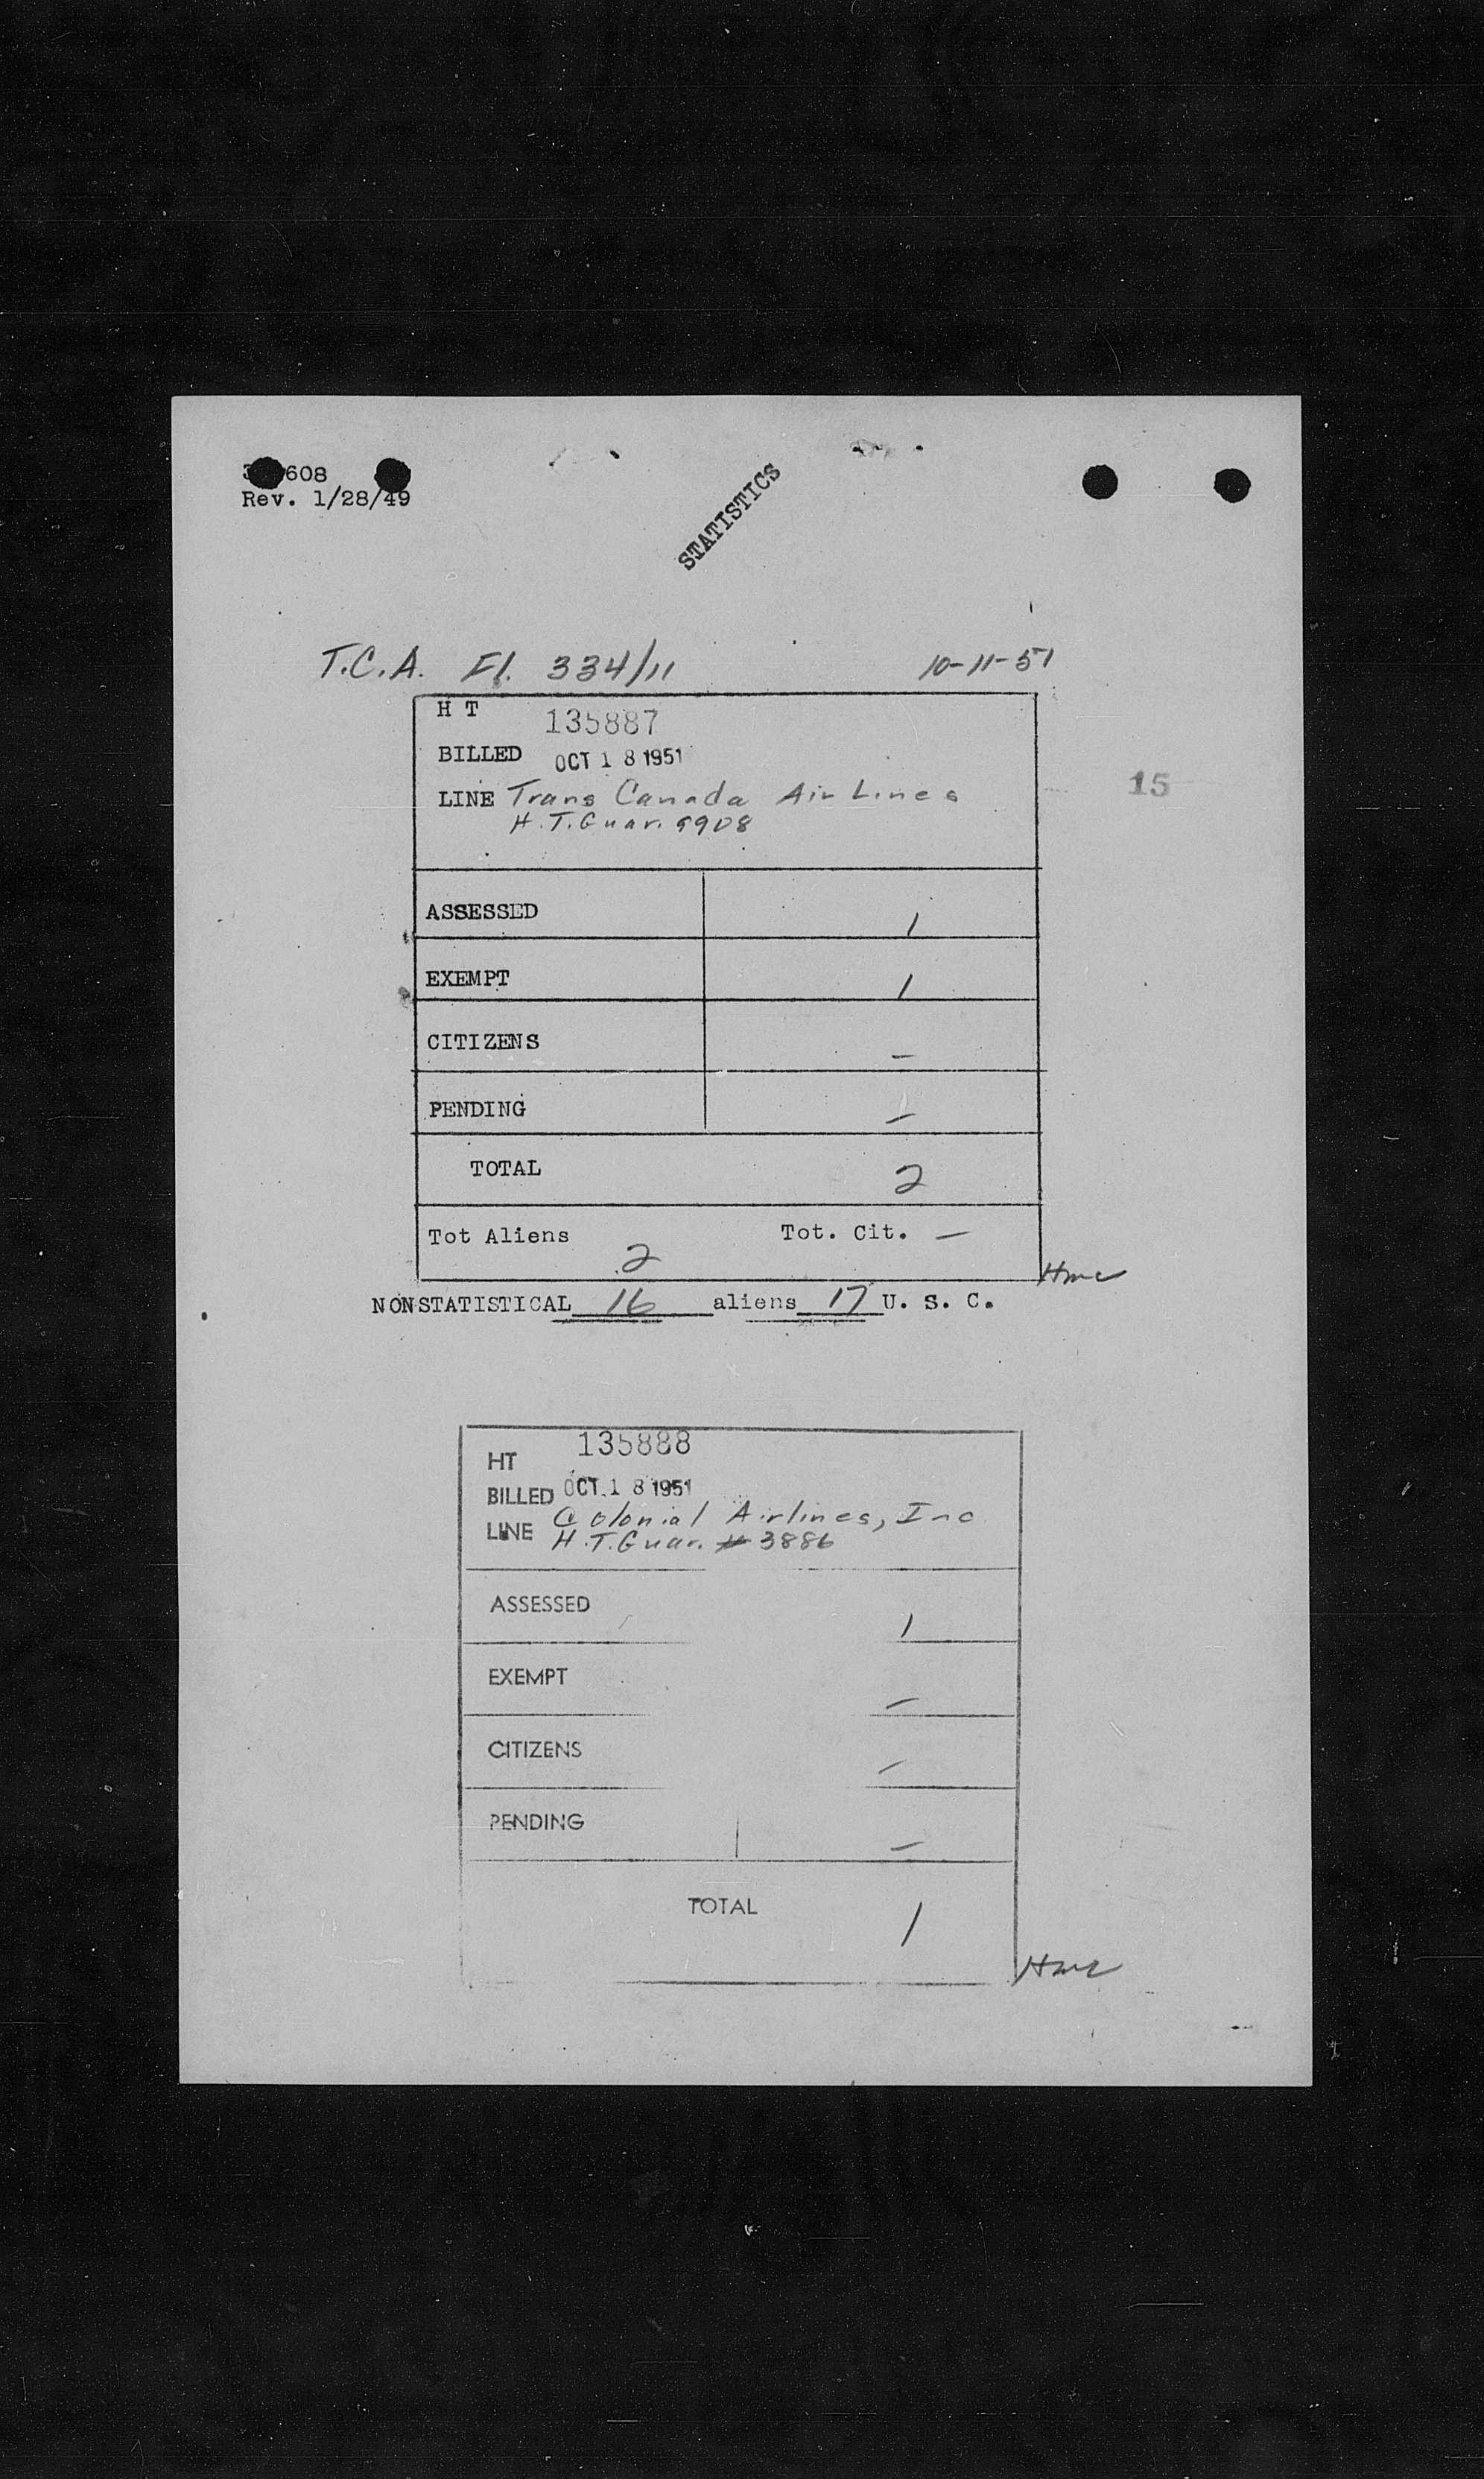 608
Rev. 1/28/49
STATISTICS
T.C.A. Fl. 334/11 10-11-51
H T 135887
BILLED OCT 18 1951
LINE Trans Canada Air Lines
H.T. Guar. 9908
15
ASSESSED 1
EXEMPT 1
CITIZENS -
PENDING -
TOTAL 2
Tot Aliens 2 Tot. Cit. -
NONSTATISTICAL 16 aliens 17 U. S. C.
HT 135888
BILLED OCT 18 1951
LINE Colonial Airlines, Inc
H.T. Guar. # 3886
ASSESSED 1
EXEMPT -
CITIZENS -
PENDING -
TOTAL 1